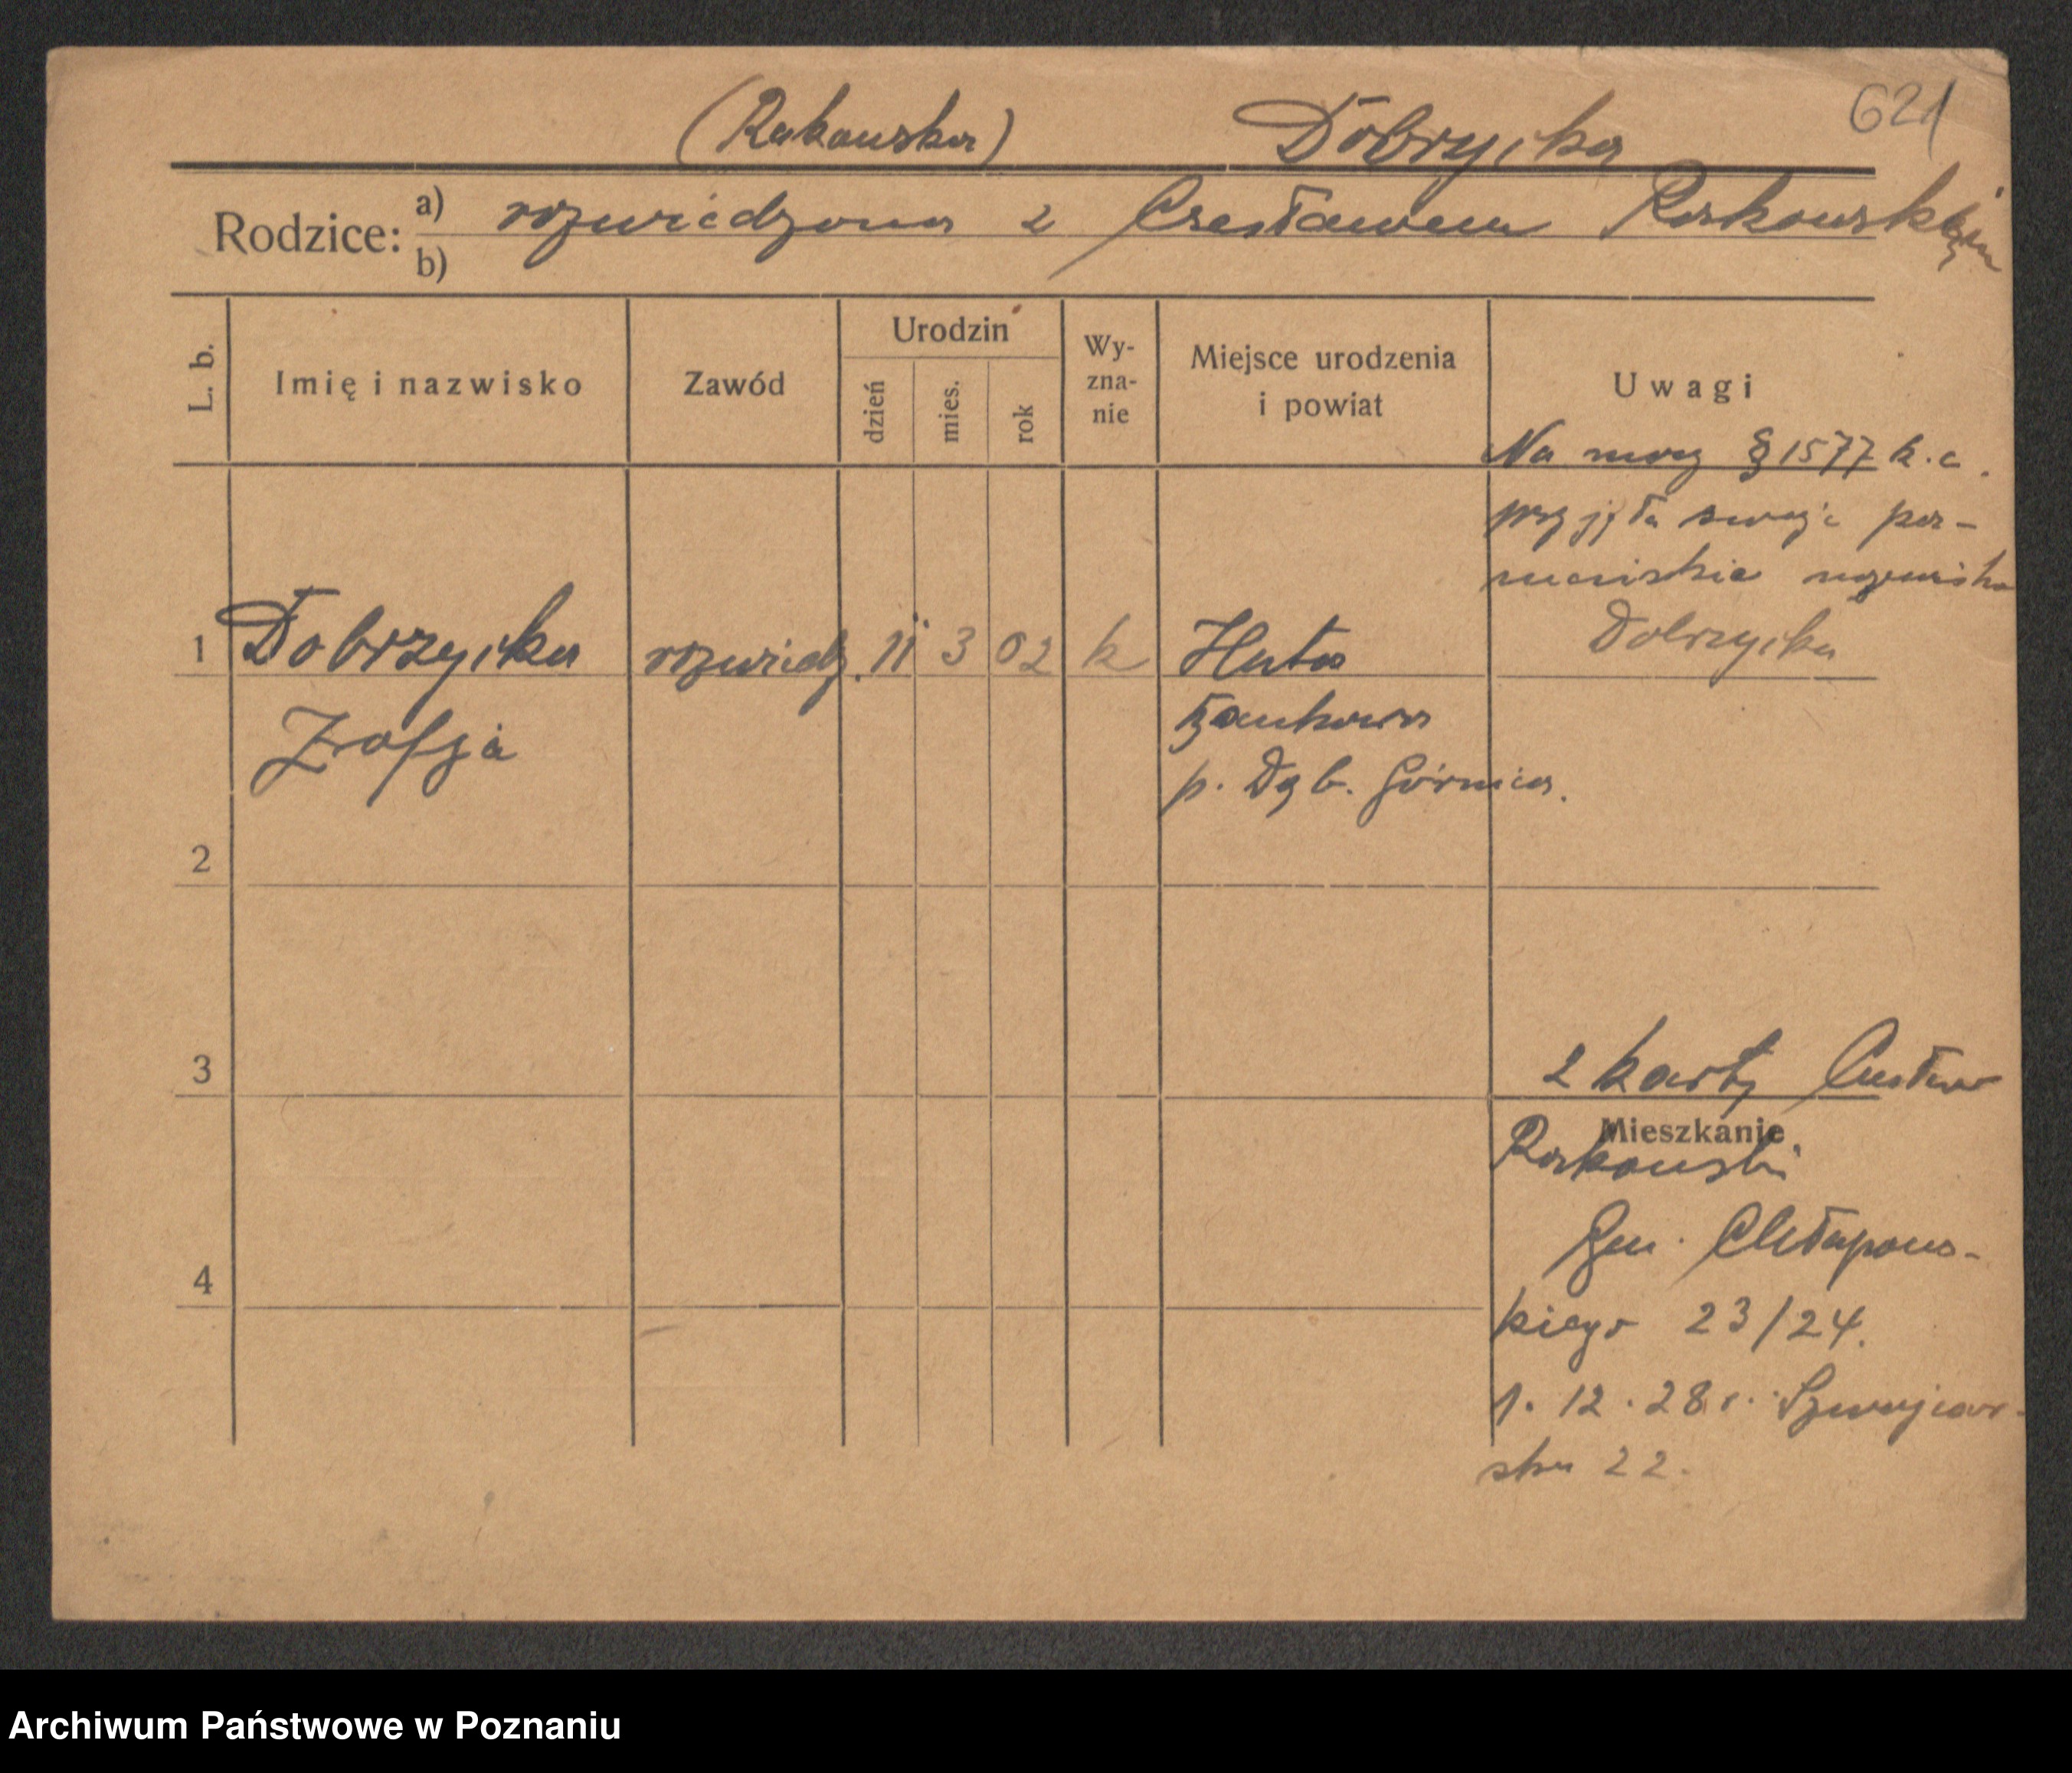 621
(Rakowska) Dobrzycka
Rodzice: a) rozwiedziona z Czesławem Rakowskim
b)
L. b. Imię i nazwisko Zawód Urodzin dzień mies. rok Wy-zna-nie Miejsce urodzenia i powiat Uwagi
Na mocy § 1577 k.c.
przyjęła swoje pa-
nieńskie nazwisko
Dobrzycka
1 Dobrzycka rozwiedz. 11 3 02 k Huta
Zofja Bankowa
p. Dąb. Górnicza.
2
3
z karty Czesław
Mieszkanie
Rakowski
4
Gen. Chłapows-
kiego 23/24.
1. 12. 28 r. Szwajcar-
ska 22.
Archiwum Państwowe w Poznaniu